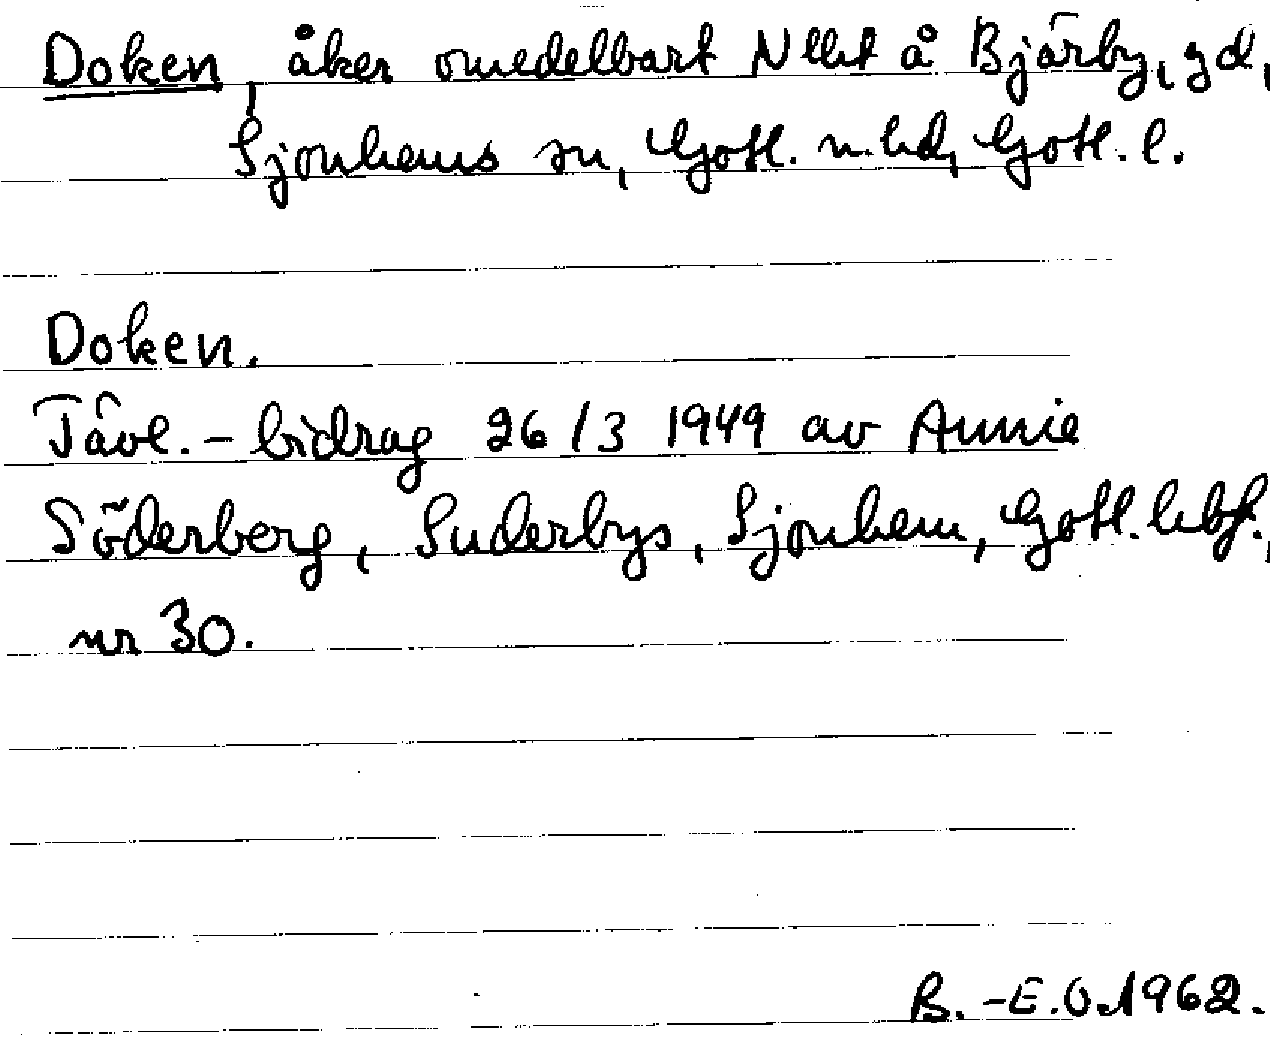 Doken, åker omedelbart N tht å Bjärby, gd,
Sjonhems sn, Gotl. n. hd, Gotl. l.
Doken.
Tävl.-bidrag 26/3 1949 av Annie
Söderberg, Suderbys, Sjonhem, Gotl. hbf.,
nr 30.
B.-E.O. 1962.